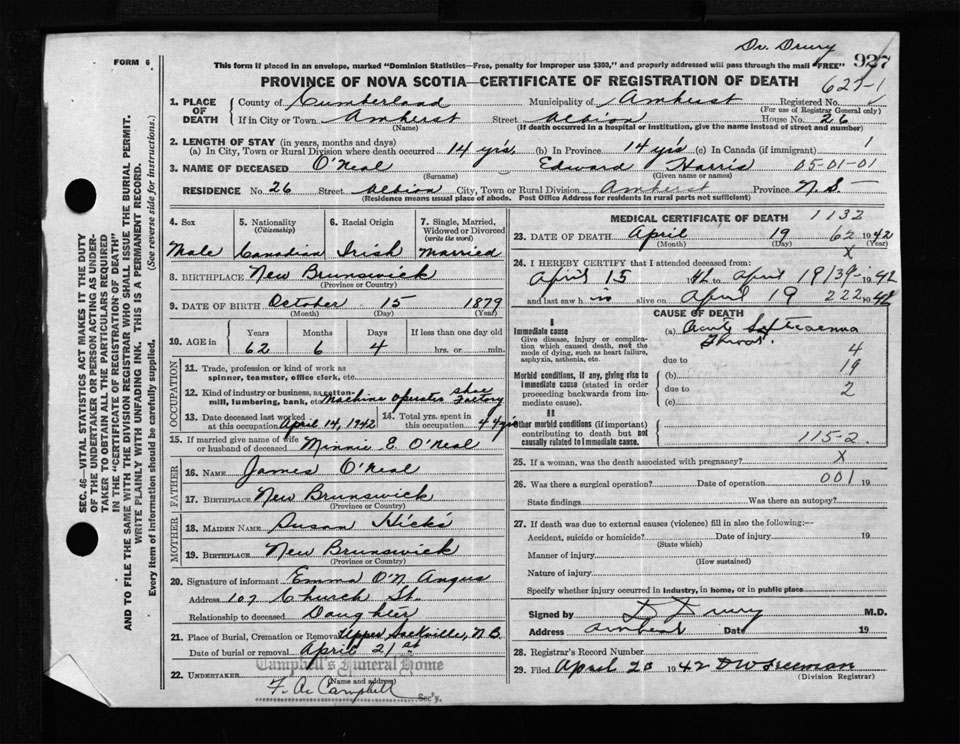 Dr. Drury
FORM 6
This form if placed in an envelope, marked "Dominion Statistics—Free, penalty for improper use $300," and properly addressed will pass through the mail "FREE"
927
PROVINCE OF NOVA SCOTIA—CERTIFICATE OF REGISTRATION OF DEATH
627-1
1. PLACE OF DEATH
County of Cumberland Municipality of Amherst Registered No. 1
(For use of Registrar General only)
If in City or Town Amherst Street Albion House No. 26
(Name) (If death occurred in a hospital or institution, give the name instead of street and number)
2. LENGTH OF STAY (in years, months and days)
(a) In City, Town or Rural Division where death occurred 14 yrs. (b) In Province 14 yrs (c) In Canada (if immigrant) 1
3. NAME OF DECEASED O'Neal Edward Harris 05-01-01
(Surname) (Given name or names)
RESIDENCE No. 26 Street Albion City, Town or Rural Division Amherst Province N.S.
(Residence means usual place of abode. Post Office Address for residents in rural parts not sufficient)
SEC. 46—VITAL STATISTICS ACT MAKES IT THE DUTY
OF THE UNDERTAKER OR PERSON ACTING AS UNDER-
TAKER TO OBTAIN ALL THE PARTICULARS REQUIRED
IN THE "CERTIFICATE OF REGISTRATION OF DEATH"
AND TO FILE THE SAME WITH THE DIVISION REGISTRAR WHO SHALL ISSUE THE BURIAL PERMIT.
WRITE PLAINLY WITH UNFADING INK. THIS IS A PERMANENT RECORD.
Every item of information should be carefully supplied. (See reverse side for instructions.)
4. Sex
Male
5. Nationality
(Citizenship)
Canadian
6. Racial Origin
Irish
7. Single, Married,
Widowed or Divorced
(write the word)
Married
8. BIRTHPLACE New Brunswick
(Province or Country)
9. DATE OF BIRTH October 15 1879
(Month) (Day) (Year)
10. AGE in
Years Months Days If less than one day old
62 6 4 hrs. or min.
OCCUPATION
11. Trade, profession or kind of work as
spinner, teamster, office clerk, etc.
12. Kind of industry or business, as cotton-
mill, lumbering, bank, etc. Machine Operator Shoe Factory
13. Date deceased last worked
at this occupation April 14, 1942
14. Total yrs. spent in
this occupation 44 yrs
15. If married give name of wife
or husband of deceased Minnie E. O'Neal
FATHER
16. NAME James O'Neal
17. BIRTHPLACE New Brunswick
(Province or Country)
MOTHER
18. MAIDEN NAME Susan Hicks
19. BIRTHPLACE New Brunswick
(Province or Country)
20. Signature of informant Emma O'N. Angus
Address 107 Church St.
Relationship to deceased Daughter
21. Place of Burial, Cremation or Removal Upper Sackville, N.B.
Date of burial or removal April 21st
Campbell's Funeral Home
22. UNDERTAKER
(Name and address)
F. A. Campbell
Sec'y.
MEDICAL CERTIFICATE OF DEATH 1132
23. DATE OF DEATH April 19 62 1942
(Month) (Day) (Year)
X
24. I HEREBY CERTIFY that I attended deceased from:
April 15 42 to April 19 139- 1942
and last saw him alive on April 19 222 1942
CAUSE OF DEATH
I
Immediate cause
Give disease, injury or complica-
tion which caused death, not the
mode of dying, such as heart failure,
asphyxia, asthenia, etc.
(a) Acute Septicaemia
Throat.
due to 4
Morbid conditions, if any, giving rise to
immediate cause (stated in order
proceeding backwards from im-
mediate cause).
(b) 19
due to 2
(c)
II
Other morbid conditions (if important)
contributing to death but not
causally related to immediate cause.
115-2
25. If a woman, was the death associated with pregnancy? X
26. Was there a surgical operation? Date of operation 001 19
State findings Was there an autopsy?
27. If death was due to external causes (violence) fill in also the following:—
Accident, suicide or homicide? Date of injury 19
(State which)
Manner of injury
(How sustained)
Nature of injury
Specify whether injury occurred in industry, in home, or in public place
Signed by D Drury M.D.
Address Amherst Date 19
28. Registrar's Record Number
29. Filed April 20 1942 DW Freeman
(Division Registrar)